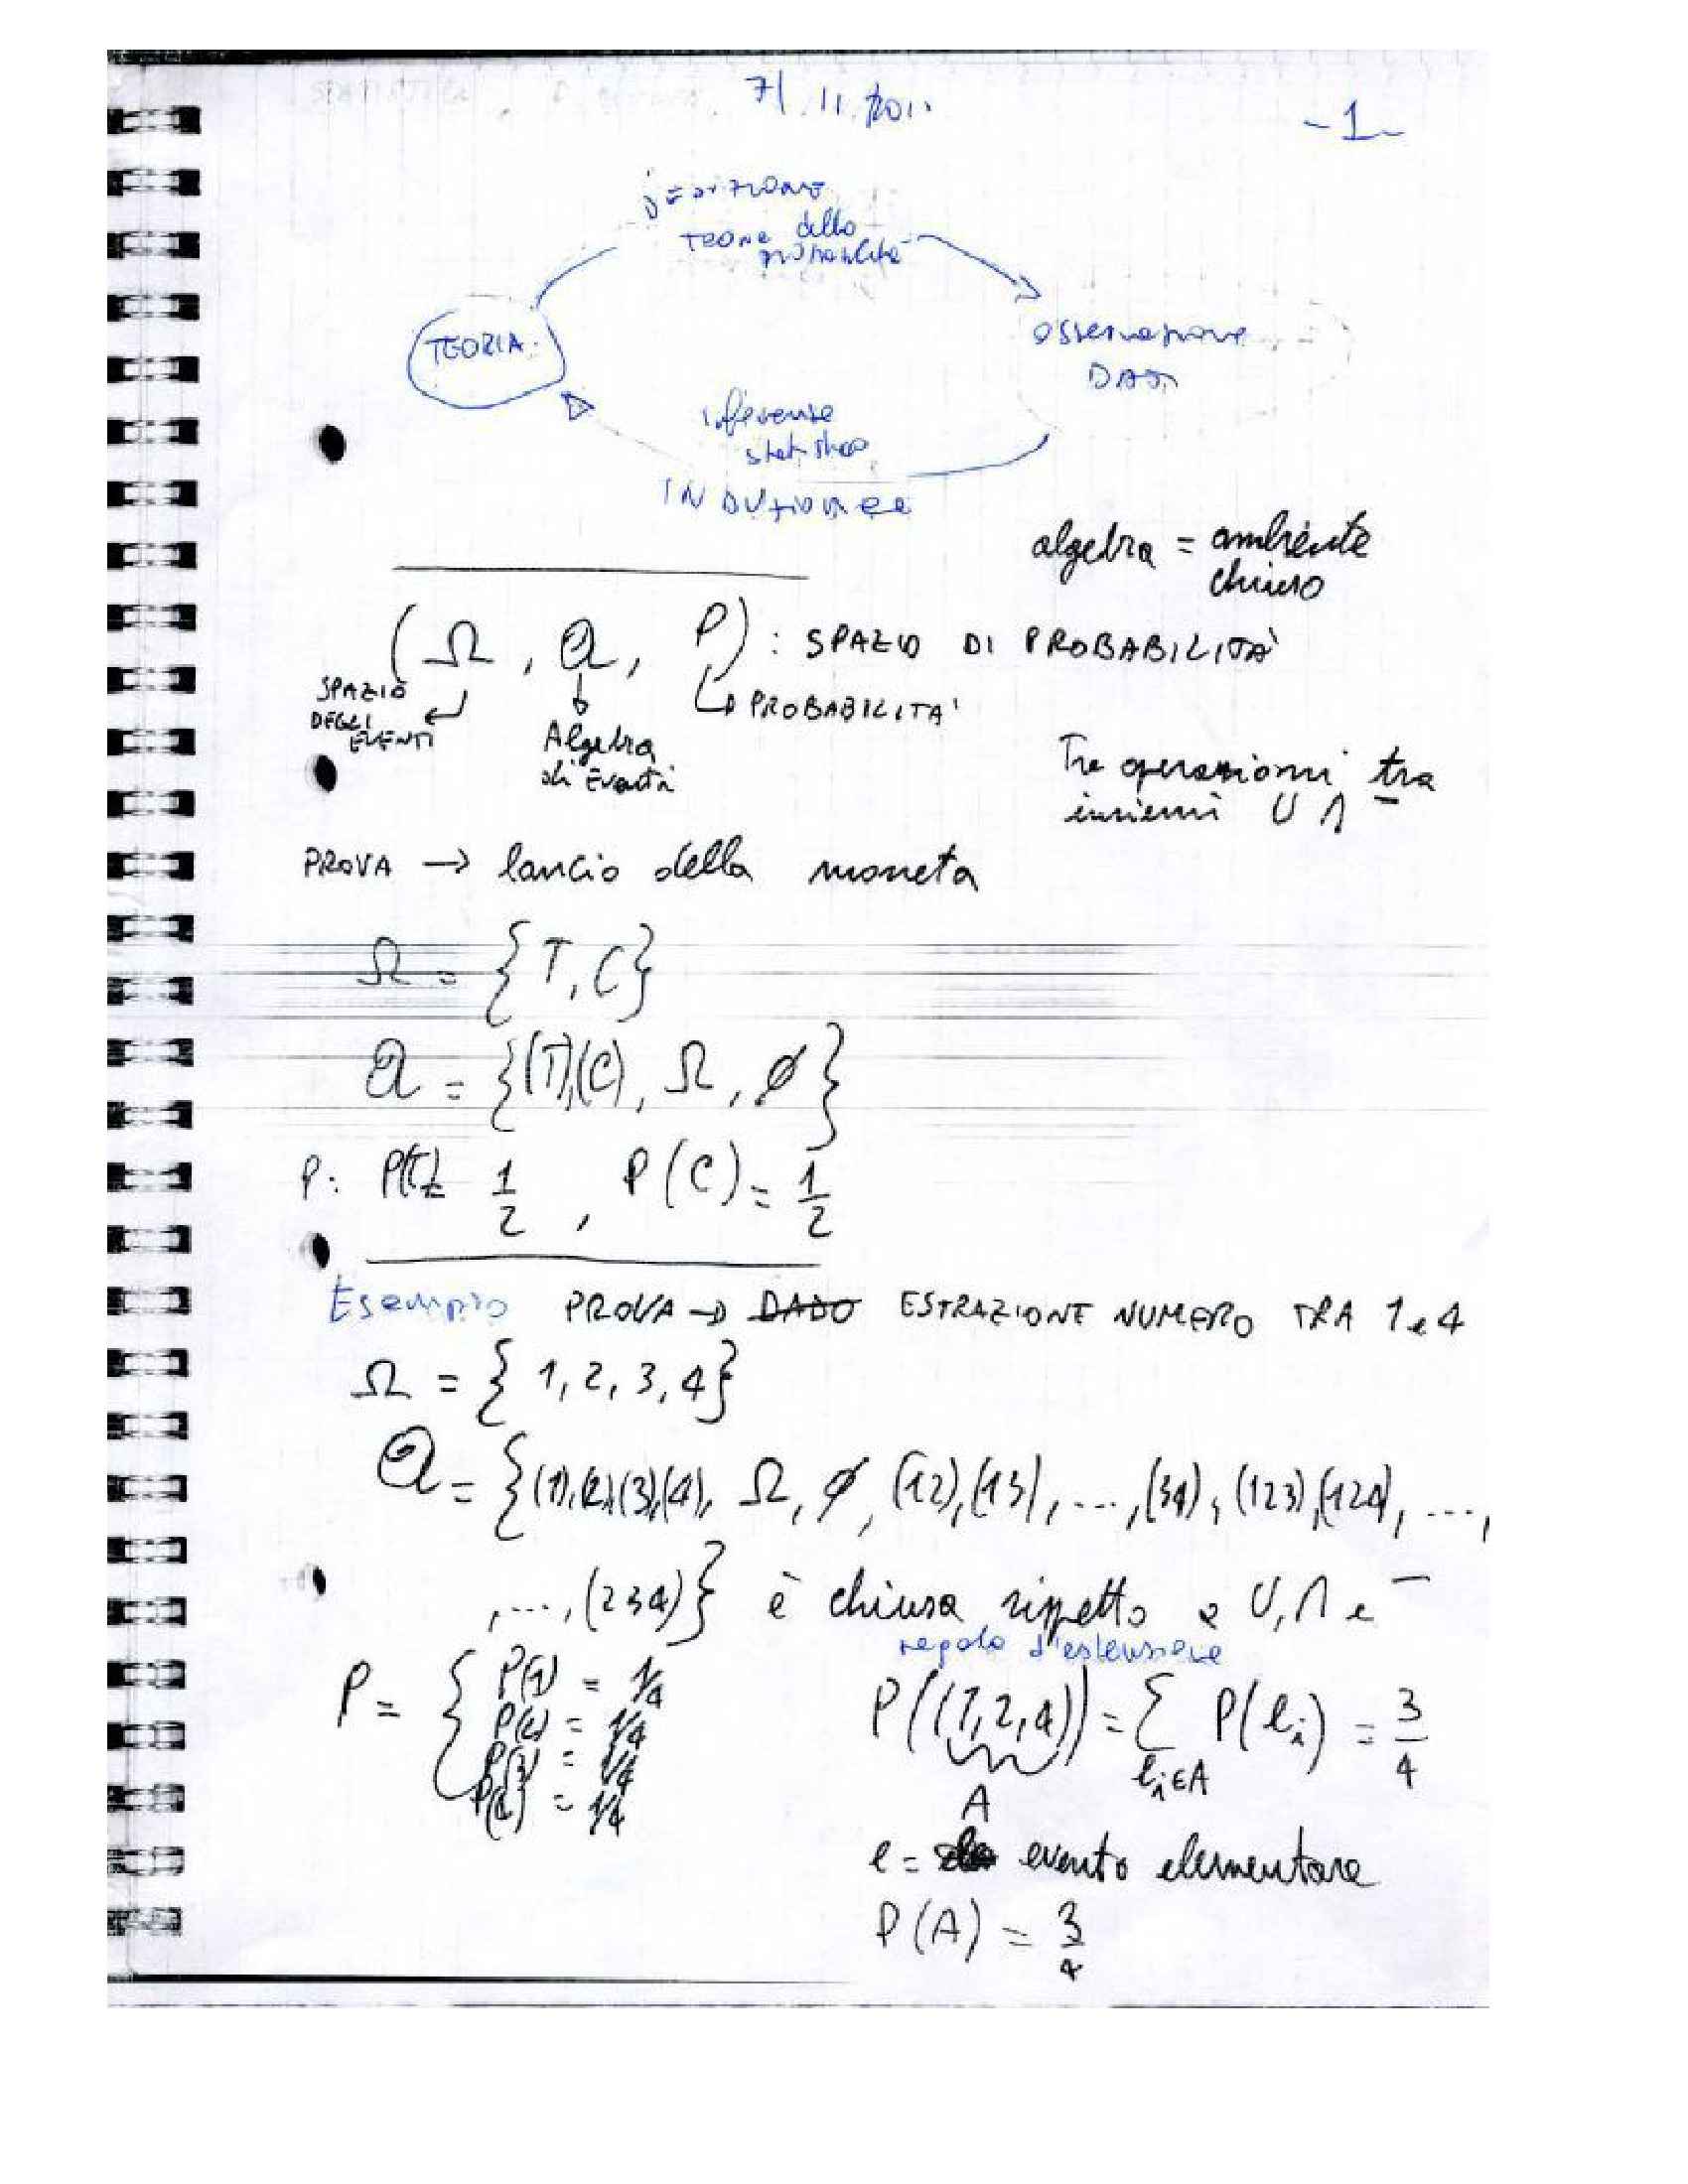 7/ 11 /2011
-1-
Teoria della
probabilità
TEORIA
osservazione
DATI
inferenza
statistica
INDUZIONE
algebra = ambiente
chiuso
(Ω, 𝒜, P) : SPAZIO DI PROBABILITÀ
SPAZIO
DEGLI
EVENTI
Algebra
di Eventi
PROBABILITA'
Tre operazioni tra
insiemi ∪ ∩ ‾
PROVA → lancio della moneta
Ω = {T, C}
𝒜 = {(T),(C), Ω, ∅}
P: P(T)= 1/2 , P(C) = 1/2
Esempio PROVA → DADO ESTRAZIONE NUMERO TRA 1 e 4
Ω = {1, 2, 3, 4}
𝒜 = {(1),(2),(3),(4), Ω, ∅, (12),(13), ..., (34), (123),(124), ...,
,..., (234)} è chiusa rispetto a ∪, ∩ e ‾
regola d'estensione
P = { P(1) = 1/4
P(2) = 1/4
P(3) = 1/4
P(4) = 1/4
P((1,2,4)) = Σ P(eᵢ) = 3/4
eᵢ∈A
A
e = evento elementare
P(A) = 3/4